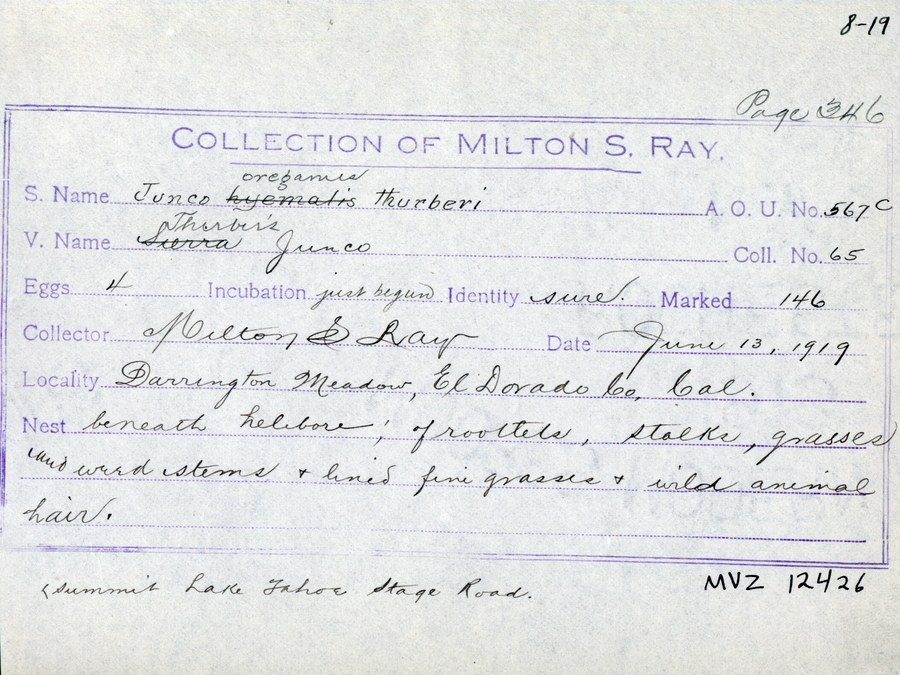 8-19
Page 346
COLLECTION OF MILTON S. RAY.
oreganus
S. Name Junco hyemalis thurberi A. O. U. No. 567c
Thurber's
V. Name Sierra Junco Coll. No. 65
Eggs 4 Incubation just begun Identity sure. Marked 146
Collector Milton S Ray Date June 13, 1919
Locality Darrington Meadow, El Dorado Co, Cal.
Nest beneath helebore; of roottets, stalks, grasses
and weed stems + lined fine grasses + wild animal
hair.
(summit Lake Tahoe Stage Road.
MVZ 12426